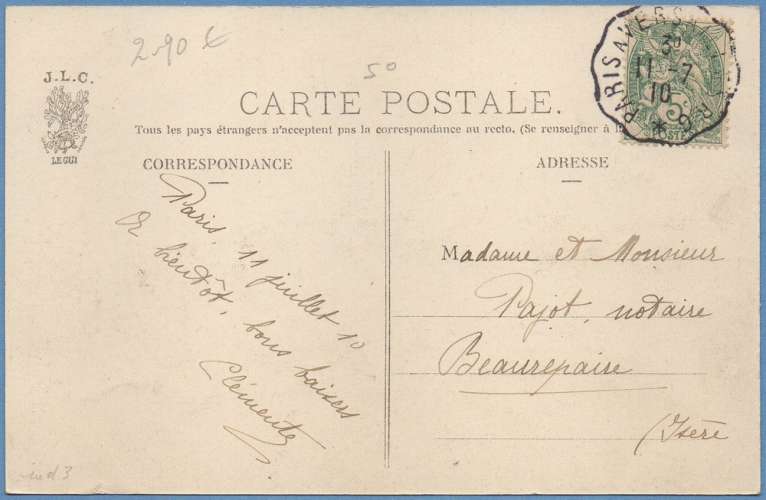 2.90 €
50
J.L.C.
LE GUI
CARTE POSTALE.
Tous les pays étrangers n'acceptent pas la correspondance au recto. (Se renseigner à
CORRESPONDANCE
ADRESSE
Paris, 11 juillet 10
A bientôt, bons baisers
Clémente
Madame et Monsieur
Pajot, notaire
Beaurepaire
(Isère
PARIS A VERS
11 -7
10
5
POSTES
ind 3